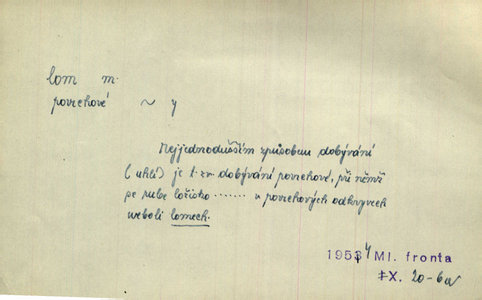 lom m.
povrchové ~ y
Nejjednodušším způsobem dobývání
(uhlí) je t. zv. dobývání povrchové, při němž
se rube ložisko ........ v povrchových odkryvech
neboli lomech.
1954 Ml. fronta
IX. 20-6a